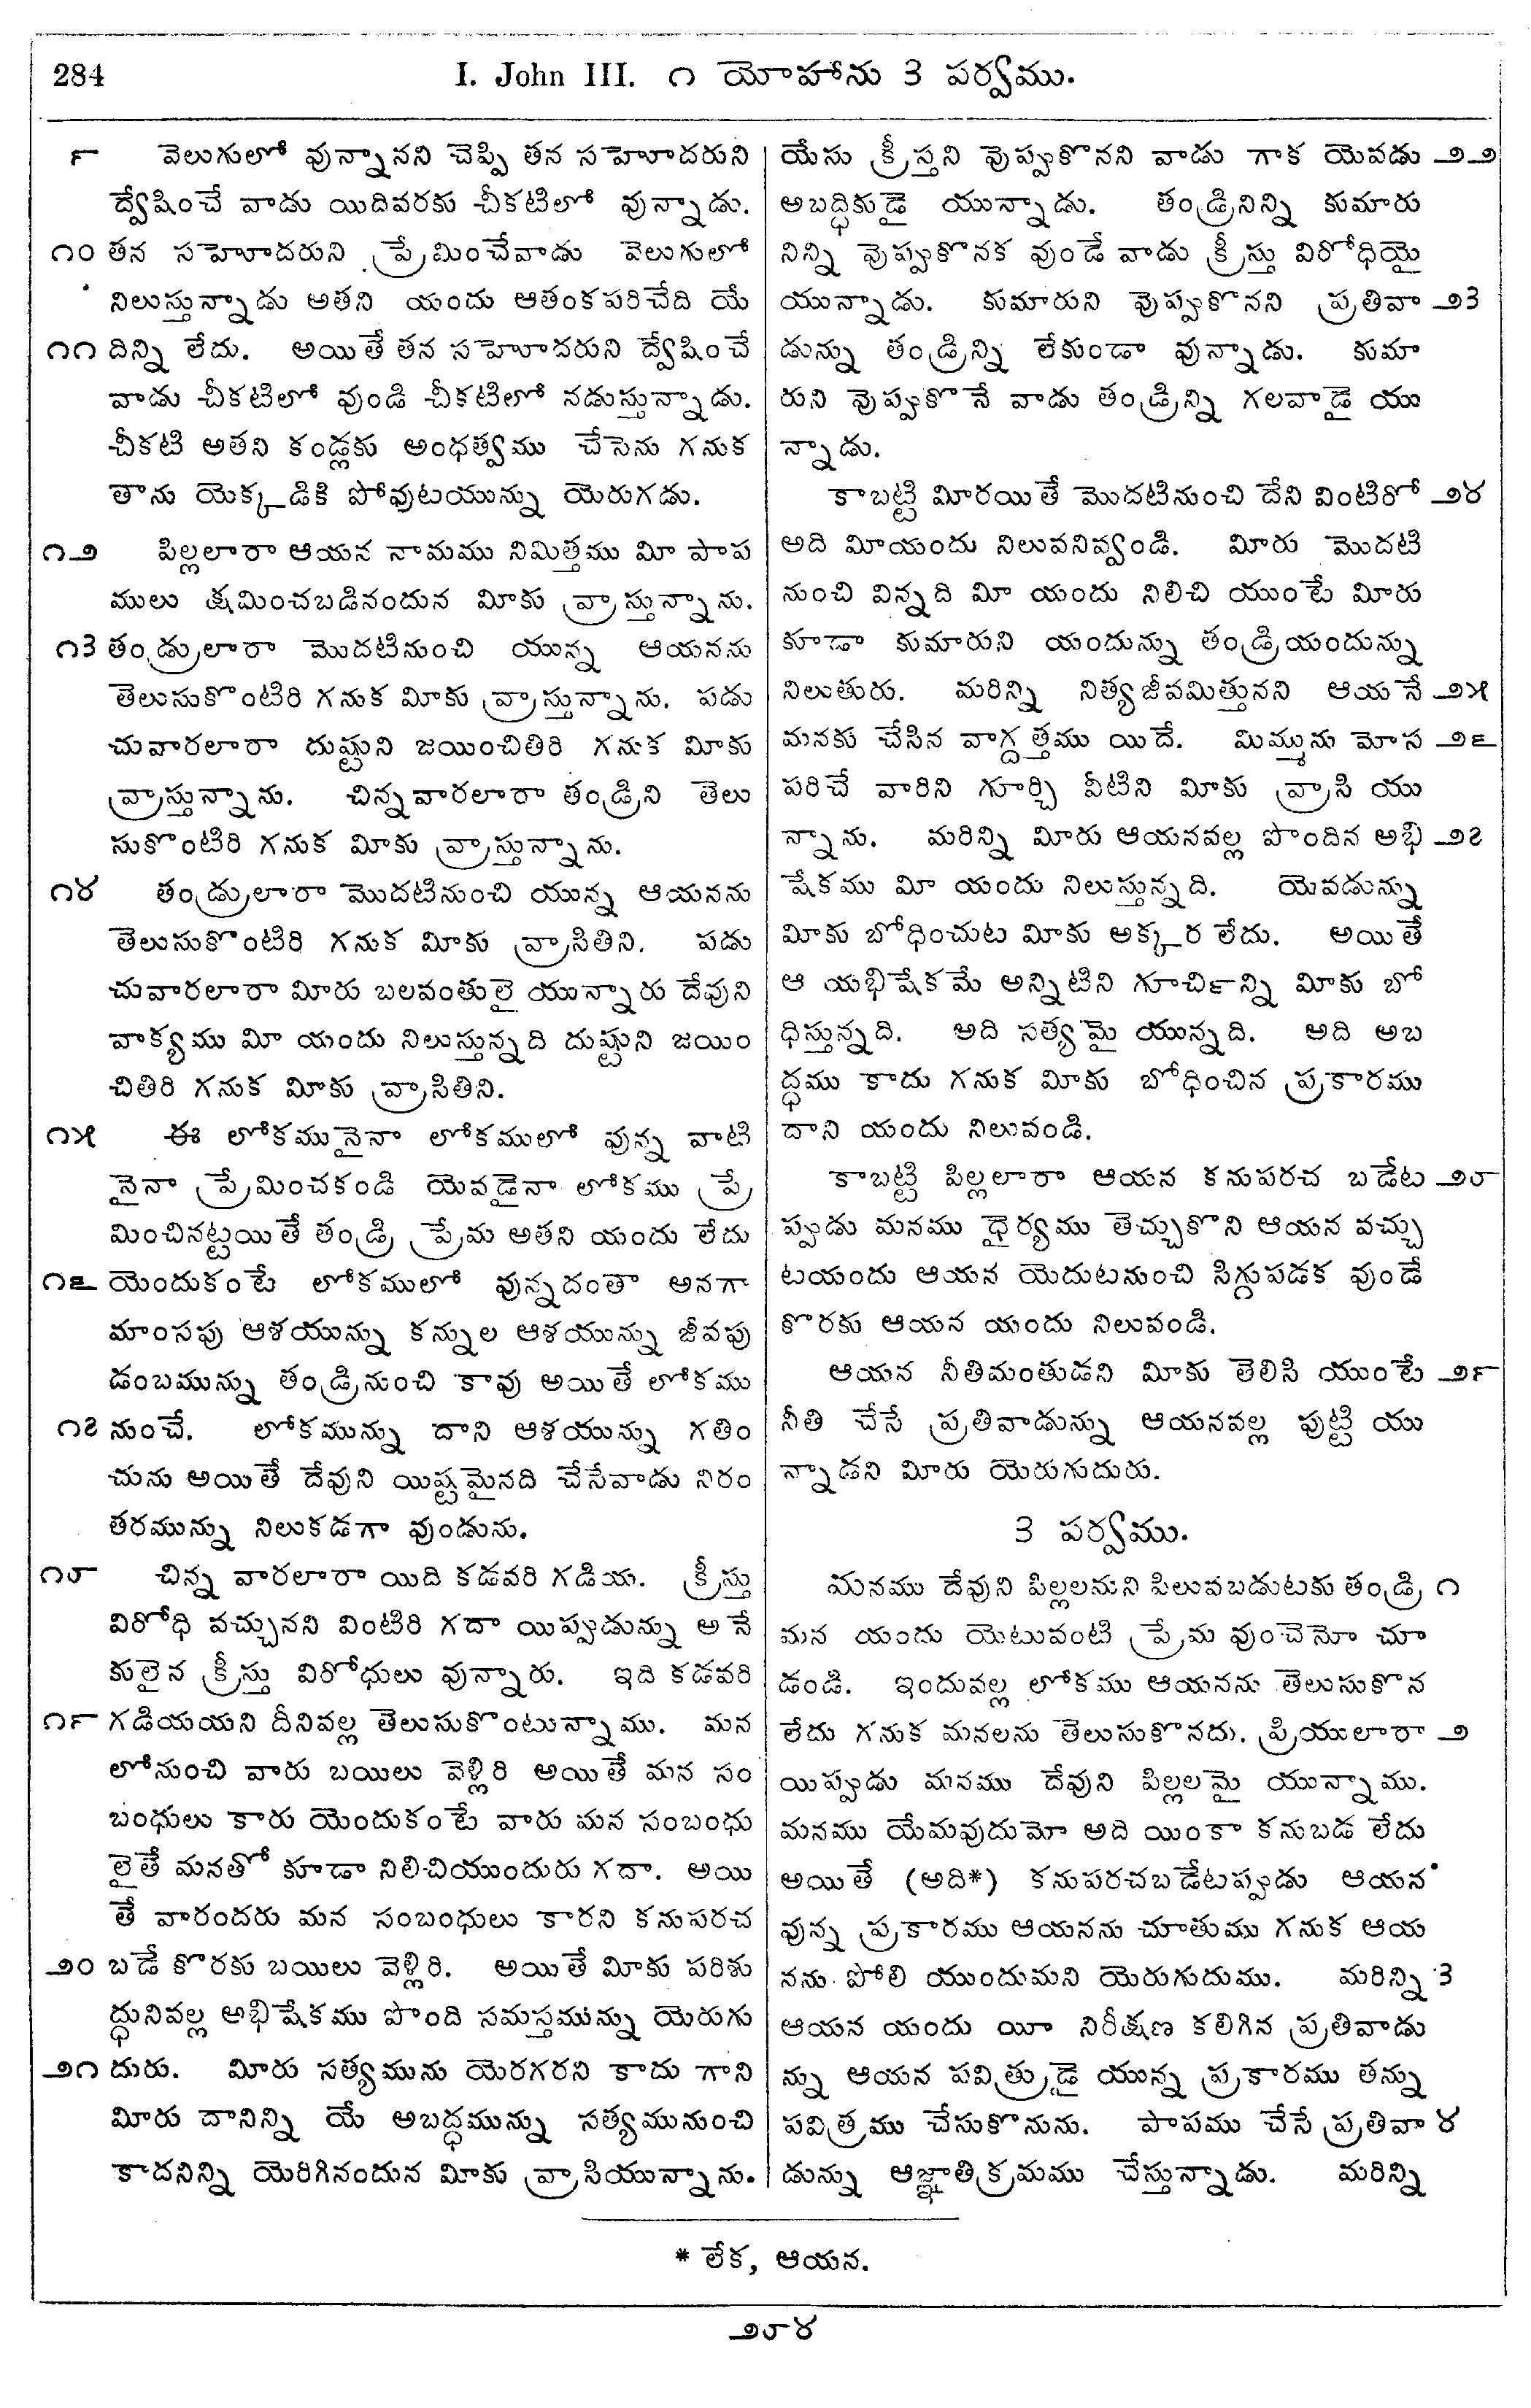 284 I. John III. ౧ యోహాను 3 పర్వము.
౯ వెలుగులో వున్నానని చెప్పి తన సహోదరుని
ద్వేషించే వాడు యిదివరకు చీకటిలో వున్నాడు.
౧౦ తన సహోదరుని ప్రేమించేవాడు వెలుగులో
నిలుస్తున్నాడు అతని యందు ఆతంకపరిచేది యే
౧౧ దిన్ని లేదు. అయితే తన సహోదరుని ద్వేషించే
వాడు చీకటిలో వుండి చీకటిలో నడుస్తున్నాడు.
చీకటి అతని కండ్లకు అంధత్వము చేసెను గనుక
తాను యెక్కడికి పోవుటయున్ను యెరుగడు.
౧౨ పిల్లలారా ఆయన నామము నిమిత్తము మీ పాప
ములు క్షమించబడినందున మీకు వ్రాస్తున్నాను.
౧౩ తండ్రులారా మొదటినుంచి యున్న ఆయనను
తెలుసుకొంటిరి గనుక మీకు వ్రాస్తున్నాను. పడు
చువారలారా దుష్టుని జయించితిరి గనుక మీకు
వ్రాస్తున్నాను. చిన్నవారలారా తండ్రిని తెలు
సుకొంటిరి గనుక మీకు వ్రాస్తున్నాను.
౧౪ తండ్రులారా మొదటినుంచి యున్న ఆయనను
తెలుసుకొంటిరి గనుక మీకు వ్రాసితిని. పడు
చువారలారా మీరు బలవంతులై యున్నారు దేవుని
వాక్యము మీ యందు నిలుస్తున్నది దుష్టుని జయిం
చితిరి గనుక మీకు వ్రాసితిని.
౧౫ ఈ లోకమునైనా లోకములో వున్న వాటి
నైనా ప్రేమించకండి యెవడైనా లోకము ప్రే
మించినట్టయితే తండ్రి ప్రేమ అతని యందు లేదు
౧౬ యెందుకంటే లోకములో వున్నదంతా అనగా
మాంసపు ఆశయున్ను కన్నుల ఆశయున్ను జీవపు
డంబమున్ను తండ్రినుంచి కావు అయితే లోకము
౧౭ నుంచే. లోకమున్ను దాని ఆశయున్ను గతిం
చును అయితే దేవుని యిష్టమైనది చేసేవాడు నిరం
తరమున్ను నిలుకడగా వుండును.
౧౮ చిన్న వారలారా యిది కడవరి గడియ. క్రీస్తు
విరోధి వచ్చునని వింటిరి గదా యిప్పుడున్ను అనే
కులైన క్రీస్తు విరోధులు వున్నారు. ఇది కడవరి
౧౯ గడియయని దీనివల్ల తెలుసుకొంటున్నాము. మన
లోనుంచి వారు బయిలు వెళ్లిరి అయితే మన సం
బంధులు కారు యెందుకంటే వారు మన సంబంధు
లైతే మనతో కూడా నిలిచియుందురు గదా. అయి
తే వారందరు మన సంబంధులు కారని కనుపరచ
౨౦ బడే కొరకు బయిలు వెళ్లిరి. అయితే మీకు పరిశు
ద్ధునివల్ల అభిషేకము పొంది సమస్తమున్ను యెరుగు
౨౧ దురు. మీరు సత్యమును యెరగరని కాదు గాని
మీరు దానిన్ని యే అబద్ధమున్ను సత్యమునుంచి
కాదనిన్ని యెరిగినందున మీకు వ్రాసియున్నాను.
యేసు క్రీస్తని వొప్పుకొనని వాడు గాక యెవడు ౨౨
అబద్ధికుడై యున్నాడు. తండ్రినిన్ని కుమారు
నిన్ని వొప్పుకొనక వుండే వాడు క్రీస్తు విరోధియై
యున్నాడు. కుమారుని వొప్పుకొనని ప్రతివా ౨౩
డున్ను తండ్రిన్ని లేకుండా వున్నాడు. కుమా
రుని వొప్పుకొనే వాడు తండ్రిన్ని గలవాడై యు
న్నాడు.
కాబట్టి మీరయితే మొదటినుంచి దేని వింటిరో ౨౪
అది మీయందు నిలువనివ్వండి. మీరు మొదటి
నుంచి విన్నది మీ యందు నిలిచి యుంటే మీరు
కూడా కుమారుని యందున్ను తండ్రియందున్ను
నిలుతురు. మరిన్ని నిత్యజీవమిత్తునని ఆయనే ౨౫
మనకు చేసిన వాగ్దత్తము యిదే. మిమ్మును మోస ౨౬
పరిచే వారిని గూర్చి వీటిని మీకు వ్రాసి యు
న్నాను. మరిన్ని మీరు ఆయనవల్ల పొందిన అభి ౨౭
షేకము మీ యందు నిలుస్తున్నది. యెవడున్ను
మీకు బోధించుట మీకు అక్కర లేదు. అయితే
ఆ యభిషేకమే అన్నిటిని గూచిన్ని మీకు బో
ధిస్తున్నది. అది సత్యమై యున్నది. అది అబ
ద్ధము కాదు గనుక మీకు బోధించిన ప్రకారము
దాని యందు నిలువండి.
కాబట్టి పిల్లలారా ఆయన కనుపరచ బడేట ౨౮
ప్పుడు మనము ధైర్యము తెచ్చుకొని ఆయన వచ్చు
టయందు ఆయన యెదుటనుంచి సిగ్గుపడక వుండే
కొరకు ఆయన యందు నిలువండి.
ఆయన నీతిమంతుడని మీకు తెలిసి యుంటే ౨౯
నీతి చేసే ప్రతివాడున్ను ఆయనవల్ల పుట్టి యు
న్నాడని మీరు యెరుగుదురు.
3 పర్వము.
మనము దేవుని పిల్లలమని పిలువబడుటకు తండ్రి ౧
మన యందు యెటువంటి ప్రేమ వుంచెనో చూ
డండి. ఇందువల్ల లోకము ఆయనను తెలుసుకొన
లేదు గనుక మనలను తెలుసుకొనదు. ప్రియులారా ౨
యిప్పుడు మనము దేవుని పిల్లలమై యున్నాము.
మనము యేమవుదుమో అది యింకా కనుబడ లేదు
అయితే (అది*) కనుపరచబడేటప్పుడు ఆయన
వున్న ప్రకారము ఆయనను చూతుము గనుక ఆయ
నను పోలి యుందుమని యెరుగుదుము. మరిన్ని ౩
ఆయన యందు యీ నిరీక్షణ కలిగిన ప్రతివాడు
న్ను ఆయన పవిత్రుడై యున్న ప్రకారము తన్ను
పవిత్రము చేసుకొనును. పాపము చేసే ప్రతివా ౪
డున్ను ఆజ్ఞాతిక్రమము చేస్తున్నాడు. మరిన్ని
* లేక, ఆయన.
౨౮౪